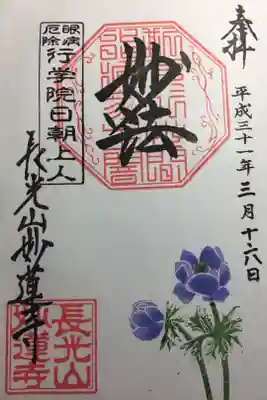 奉拝
平成三十一年三月十六日
妙法
眼病
厄除
行学院日朝上人
長光山妙蓮寺
長光山
妙蓮寺